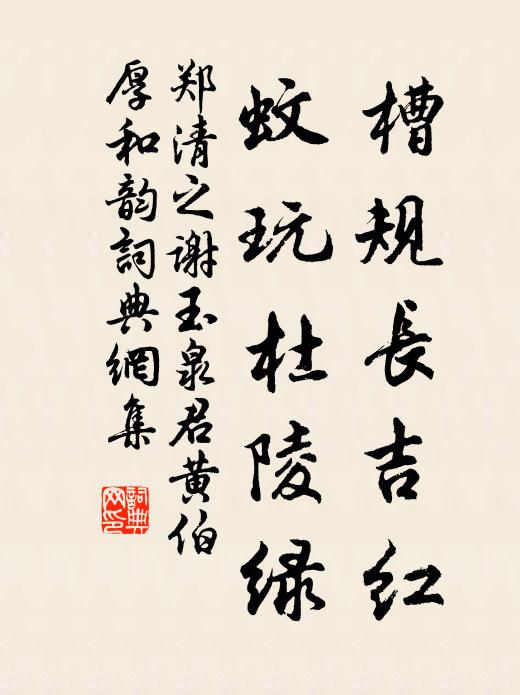 槽规長吉红
蚊玩杜陵绿
郑清之谢玉泉君黄伯
厚和韵詞典網集
詞典网印